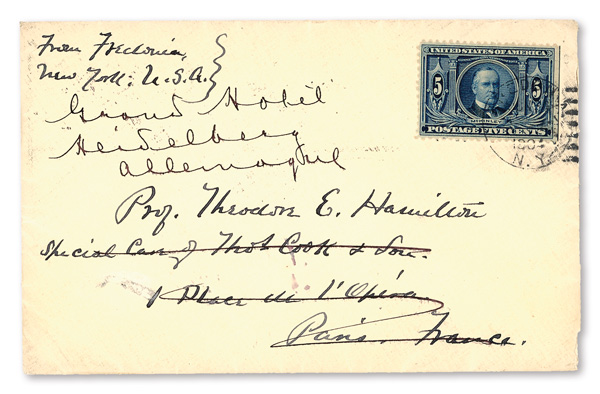 From Fredonia,
New York. U.S.A.
Grand Hotel
Heidelberg
Allemagne
Prof. Theodore E. Hamilton
Special Care of Thos Cook & Son.
1 Place de l'Opéra
Paris. France.
UNITED STATES OF AMERICA
5 5
POSTAGE FIVE CENTS
N.Y.